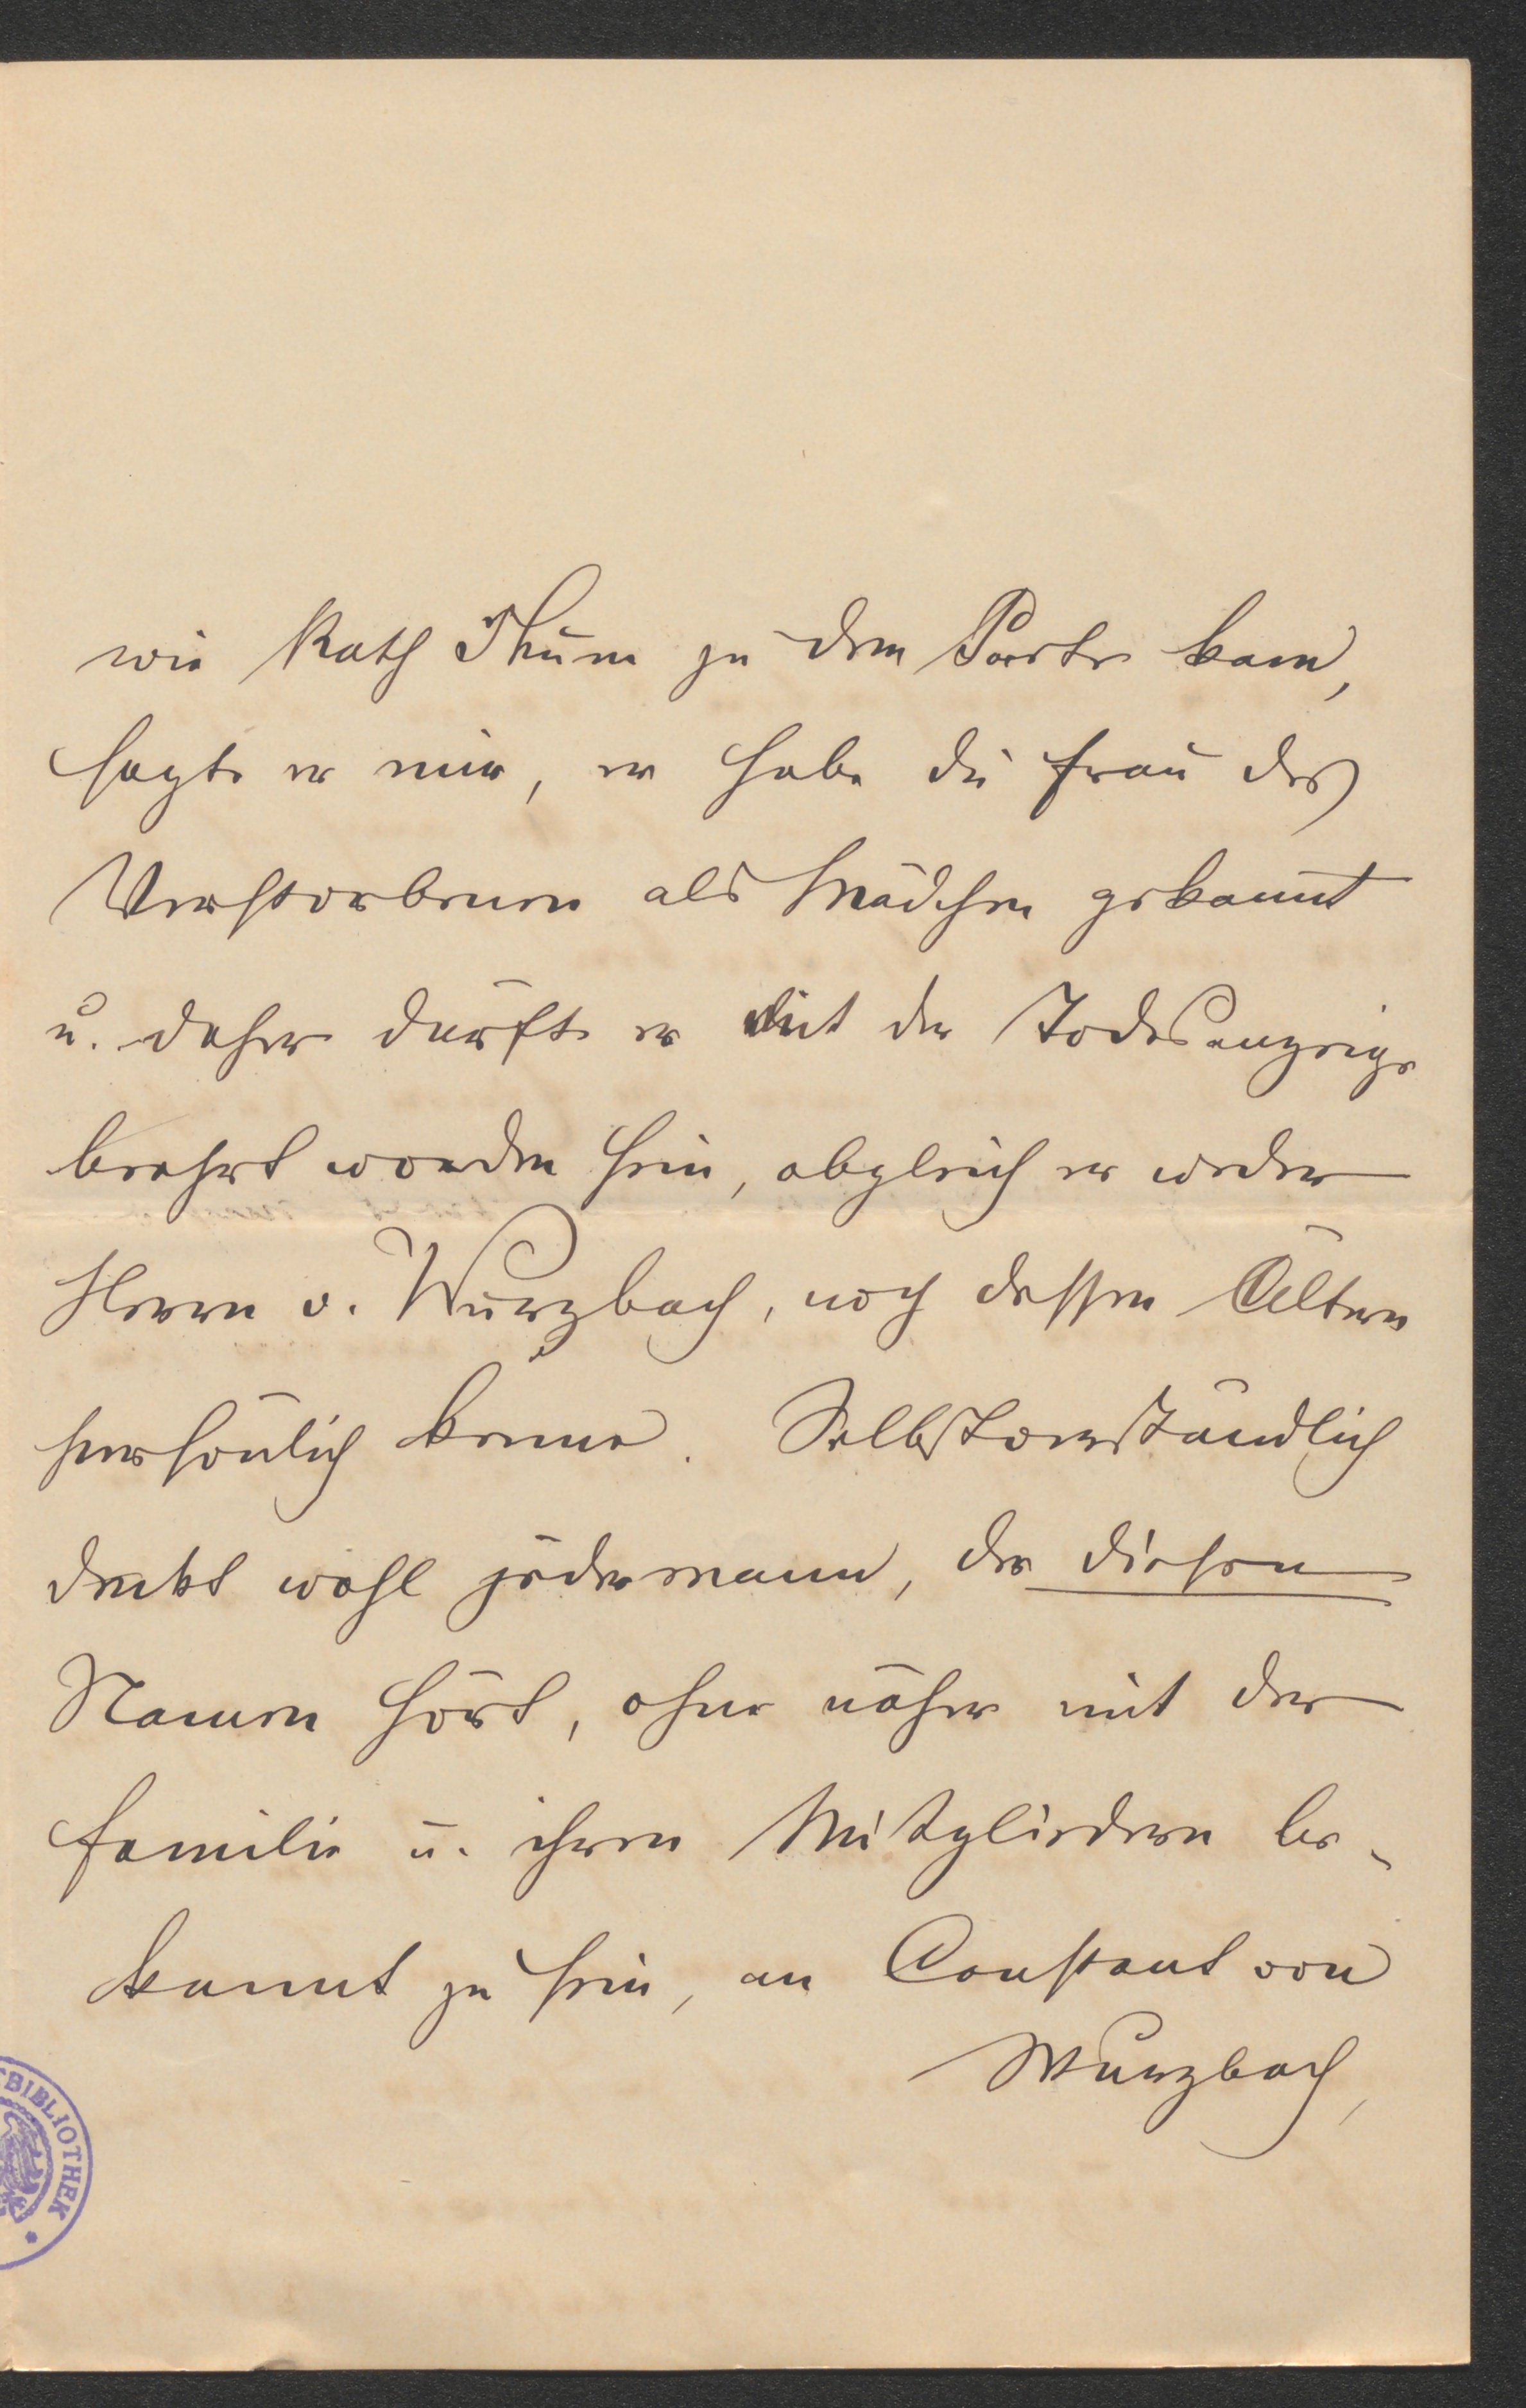 wie Rath Thum zu dem Parte kam,
sagte er mir, er habe die Frau des
Verstorbenen als Mädchen gekannt
u. daher dürfte er mit der Todesanzeige
beehrt worden sein, obgleich er weder
Herrn v. Wurzbach, noch dessen Ältern
persönlich kenne. Selbstverständlich
denkt wohl jedermann, der diesen
Namen hört, ohne näher mit der
Familie u. ihren Mitgliedern be-
kannt zu sein, an Constant von
Wurzbach,
BIBLIOTHEK